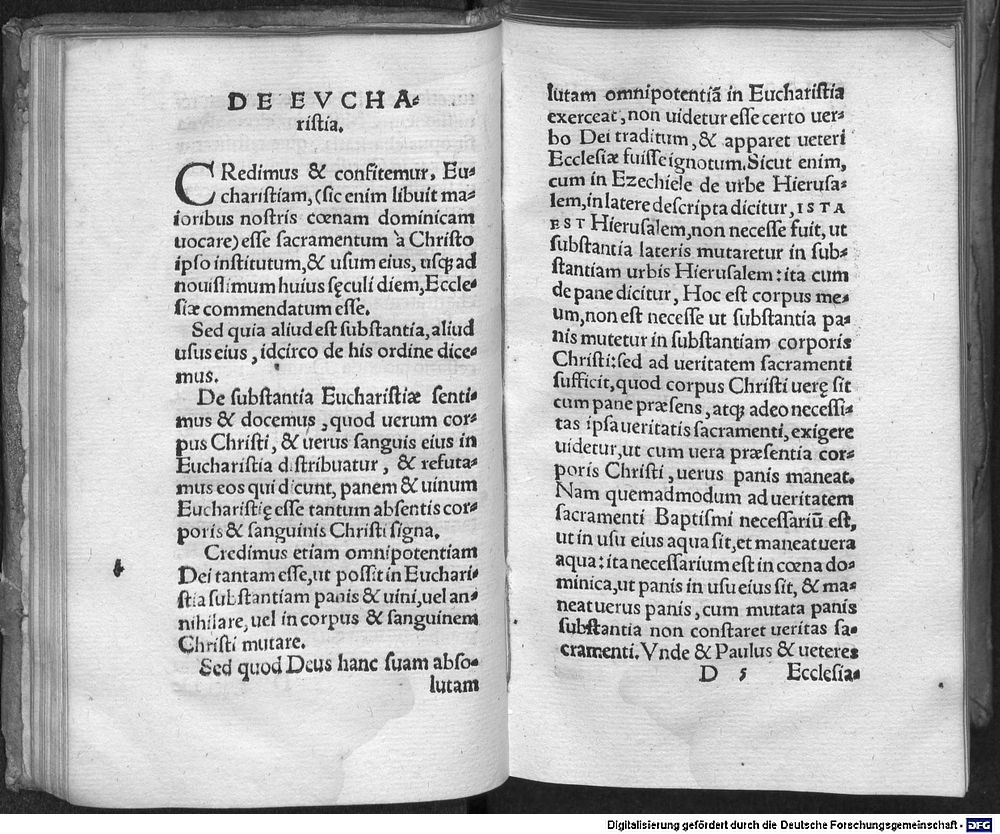 DE EVCHA-
ristia.
CRedimus & confitemur, Eu-
charistiam, (sic enim libuit ma-
ioribus nostris cœnam dominicam
uocare) esse sacramentum à Christo
ipso institutum, & usum eius, usqꝫ ad
nouissimum huius sęculi diem, Eccle-
siæ commendatum esse.
Sed quia aliud est substantia, aliud
usus eius, idcirco de his ordine dice-
mus.
De substantia Eucharistiæ senti-
mus & docemus, quod uerum cor-
pus Christi, & uerus sanguis eius in
Eucharistia distribuatur, & refuta-
mus eos qui dicunt, panem & uinum
Eucharistię esse tantum absentis cor-
poris & sanguinis Christi signa.
Credimus etiam omnipotentiam
Dei tantam esse, ut possit in Euchari-
stia substantiam panis & uini, uel an-
nihilare, uel in corpus & sanguinem
Christi mutare.
Sed quod Deus hanc suam abso-
lutam
lutam omnipotentiā in Eucharistia
exerceat, non uidetur esse certo uer-
bo Dei traditum, & apparet ueteri
Ecclesiæ fuisse ignotum. Sicut enim,
cum in Ezechiele de urbe Hierusa-
lem, in latere descripta dicitur, ISTA
EST Hierusalem, non necesse fuit, ut
substantia lateris mutaretur in sub-
stantiam urbis Hierusalem: ita cum
de pane dicitur, Hoc est corpus me-
um, non est necesse ut substantia pa-
nis mutetur in substantiam corporis
Christi: sed ad ueritatem sacramenti
sufficit, quod corpus Christi uerę sit
cum pane præsens, atqꝫ adeo necessi-
tas ipsa ueritatis sacramenti, exigere
uidetur, ut cum uera præsentia cor-
poris Christi, uerus panis maneat.
Nam quemadmodum ad ueritatem
sacramenti Baptismi necessariū est,
ut in usu eius aqua sit, et maneat uera
aqua: ita necessarium est in cœna do-
minica, ut panis in usu eius sit, & ma-
neat uerus panis, cum mutata panis
substantia non constaret ueritas sa-
cramenti. Vnde & Paulus & ueteres
D 5 Ecclesia-
Digitalisierung gefördert durch die Deutsche Forschungsgemeinschaft - DFG